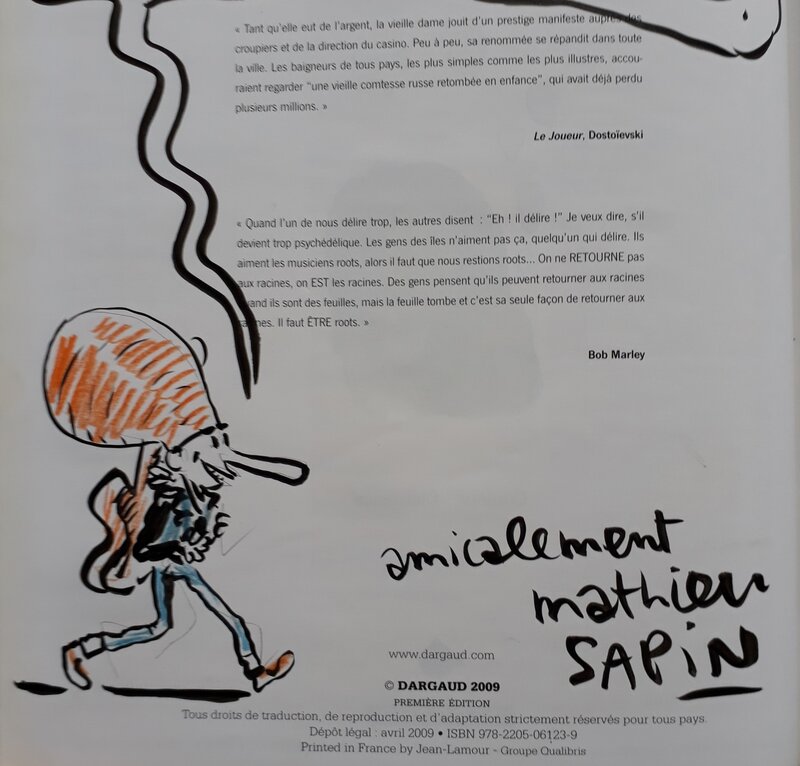 « Tant qu'elle eut de l'argent, la vieille dame jouit d'un prestige manifeste auprès des
croupiers et de la direction du casino. Peu à peu, sa renommée se répandit dans toute
la ville. Les baigneurs de tous pays, les plus simples comme les plus illustres, accou-
raient regarder “une vieille comtesse russe retombée en enfance”, qui avait déjà perdu
plusieurs millions. »
Le Joueur, Dostoïevski
« Quand l'un de nous délire trop, les autres disent : “Eh ! il délire !” Je veux dire, s'il
devient trop psychédélique. Les gens des îles n'aiment pas ça, quelqu'un qui délire. Ils
aiment les musiciens roots, alors il faut que nous restions roots... On ne RETOURNE pas
aux racines, on EST les racines. Des gens pensent qu'ils peuvent retourner aux racines
quand ils sont des feuilles, mais la feuille tombe et c'est sa seule façon de retourner aux
racines. Il faut ÊTRE roots. »
Bob Marley
amicalement
mathieu
SAPiN
www.dargaud.com
© DARGAUD 2009
PREMIÈRE ÉDITION
Tous droits de traduction, de reproduction et d'adaptation strictement réservés pour tous pays.
Dépôt légal : avril 2009 • ISBN 978-2205-06123-9
Printed in France by Jean-Lamour - Groupe Qualibris